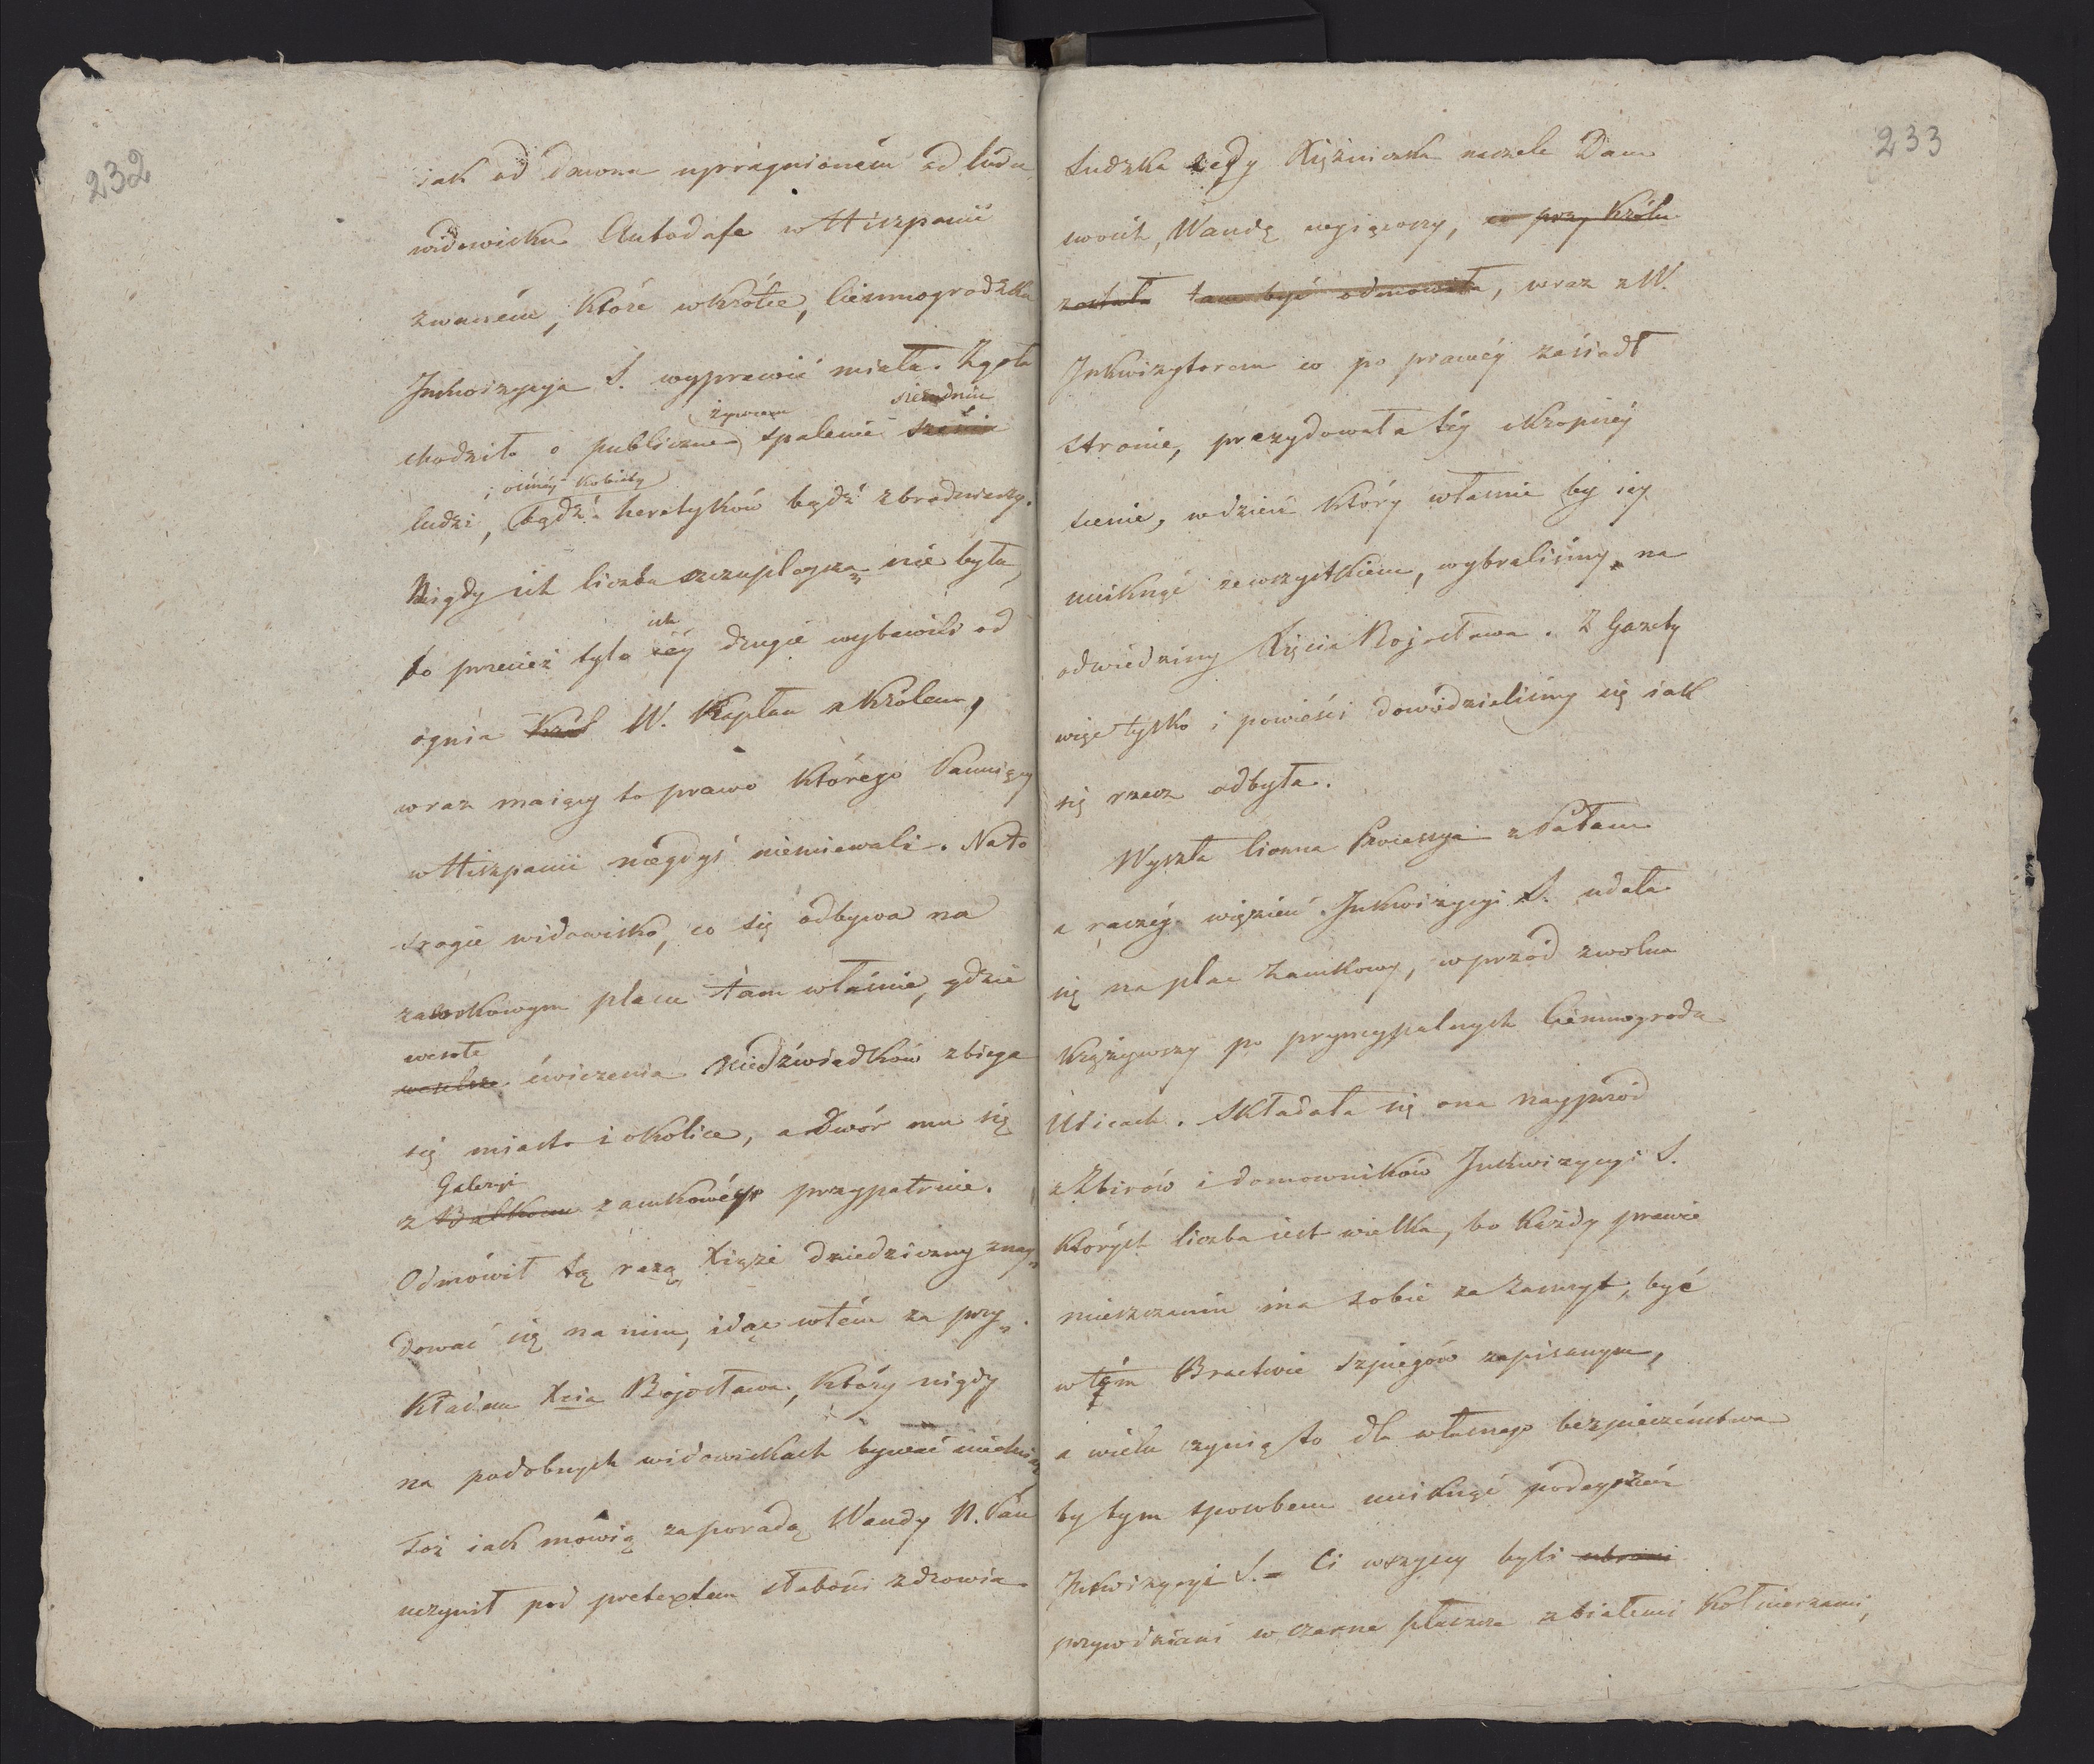 232
iak od dawna uprágnioném od ludu
widowisku Autodafe w Hiszpanii
zwaném, które wkrótce, Ciemnogrodzka
Inkwizycyja S. wyprawić miała. Zgoła
żywcem siedmiu
chodziło o publiczne spalenie sześciu
i ósméy kobiéty
ludzi, bądź heretyków bądź zbrodniarzy.
Nigdy ich liczba szczuplejszą nie była,
ich
to przecież tylo iéy drugie wybawili od
ognia Król W. Kapłan z Królem,
wraz maiący to prawo którego Panuiący
w Hiszpanii niegdyś niemiewali. Na to
srogie widowisko, co się odbywa na
zamkowym placu tam właśnie, gdzie
wesołe
weselsze ćwiczenia Niedźwiadków zbiega
się miasto i okolice, a Dwór mu się
Galeryi
z Balkonu zamkowéy przypatruie.
Odmówił tą razą Xiąże dziedziczny znay-
dować się na nim, idąc wtém za przy-
kładem Xcia Bojosława, który nigdy
na podobnych widowiskach bywać niechciał
Toż iak mówią za poradą Wandy N. Pan
uczynił pod pretextem słabości zdrowia.
233
Ludzka tedy Xiężniczka naczele Dam
swoich, Wandę wyiąwszy, co przy Królu
została tam być odmówiła, wraz z W.
Inkwizytorem co po prawéy zasiadł
stronie, prezydowała téy okropnéy
scenie, w dzień który właśnie by iéy
uniknąć zewszystkiem, wybraliśmy na
odwiedziny Xięcia Bojosława. Z Gazety
więc tylko i powieści dowiedzieliśmy się iak
się rzecz odbyła.
Wyszła liczna Processya z Pałacu
a raczéy więzień Inkwizycyi S. udała
się na plac Zamkowy, wprzód zwolna
krążywszy po pryncypalnych Ciemnogrodu
Ulicach. Składała się ona nayprzód
z Zbirów i domowników Inkwizycyi S.
których liczba iest wielka, bo każdy prawie
mieszczanin ma sobie za zaszczyt, być
w tém Bractwie szpiegów zapisanym,
a wielu czynią to dla własnego bezpieczeństwa
by tym sposobem uniknąć podeyrzeń
Inkwizycyi S. - Ci wszyscy byli ubrani
przywdziani w czarne płaszcze z białemi kołnierzami,